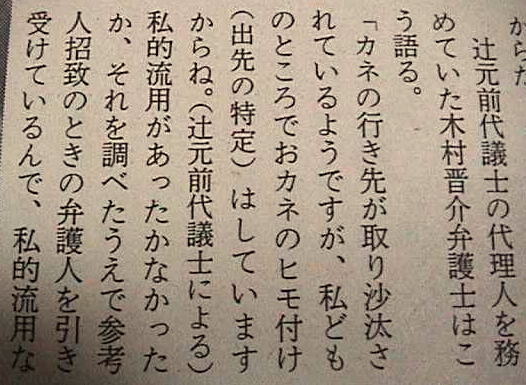 からだ
辻元前代議士の代理人を務
めていた木村晋介弁護士はこ
う語る。
「カネの行き先が取り沙汰さ
れているようですが、私ども
のところでおカネのヒモ付け
（出先の特定）はしています
からね。（辻元前代議士による）
私的流用があったかなかった
か、それを調べたうえで参考
人招致のときの弁護人を引き
受けているんで、私的流用な